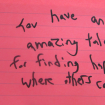 You have an
amazing tal
for finding hap
where others